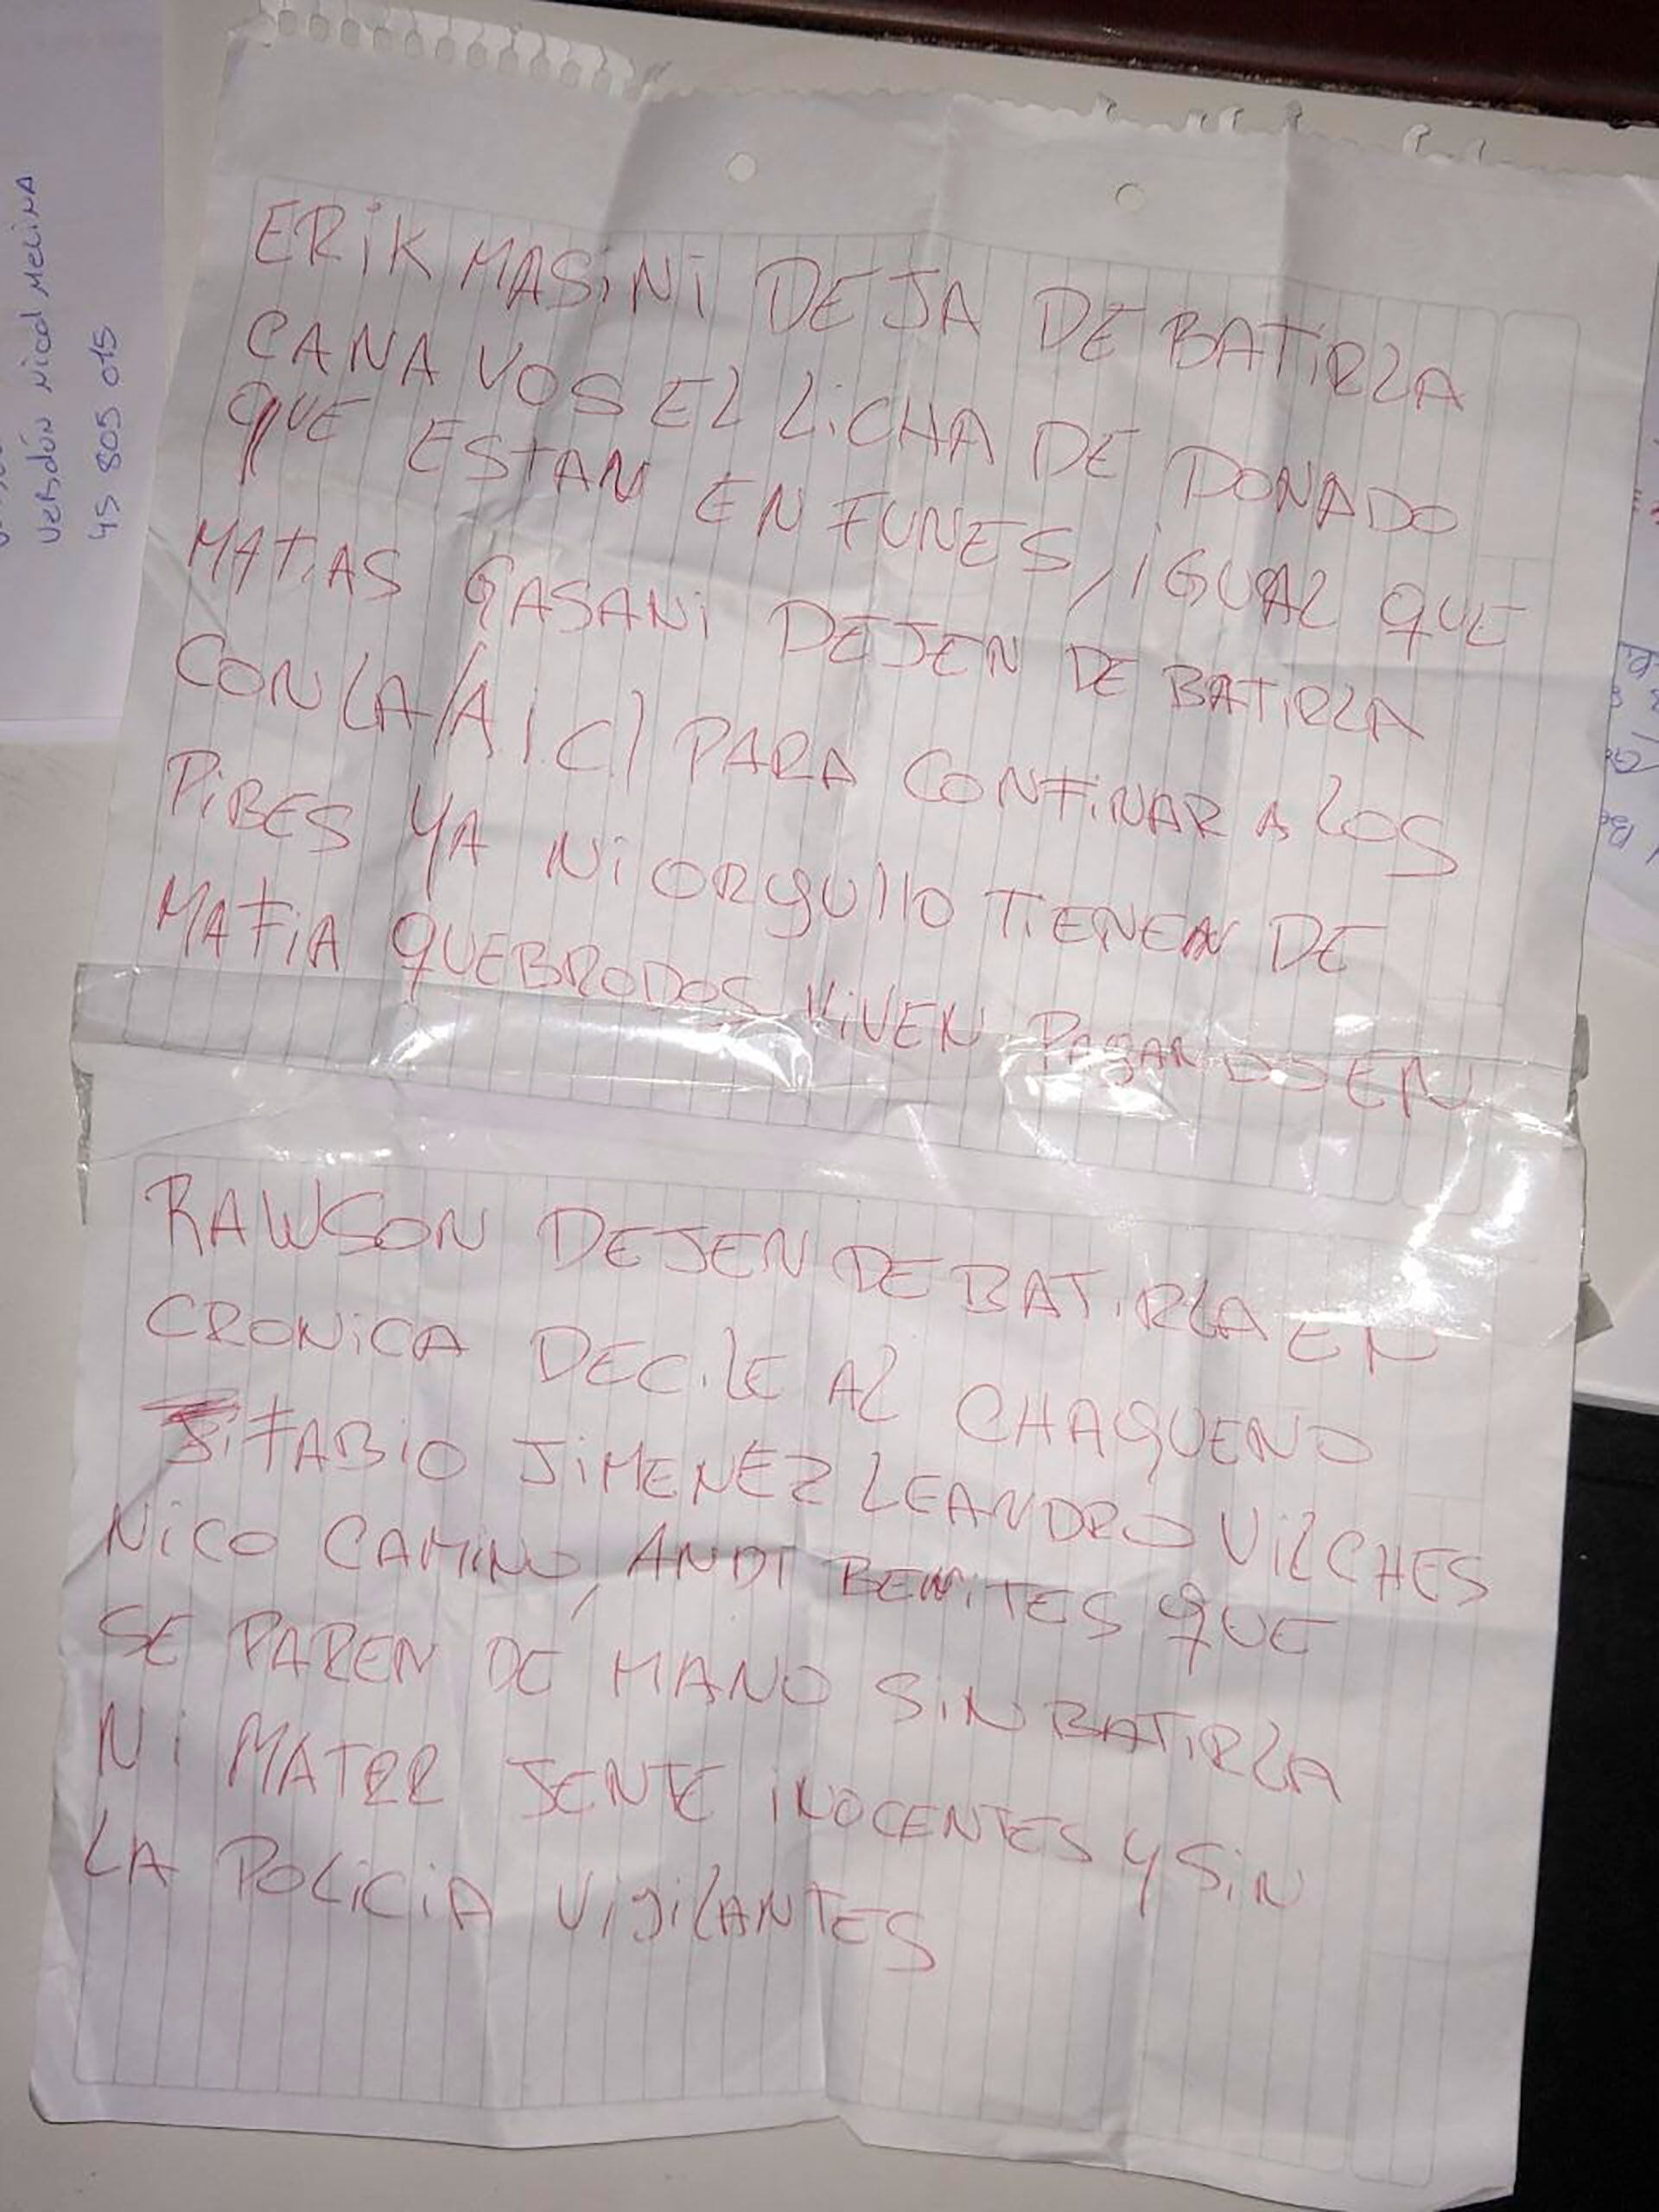 ERiK MASiNi DEJA DE BATiRLA
CANA VOS EL LiCHA DE DONADO
QUE ESTAN EN FUNES, iGUAL QUE
MATiAS GASANi DEJEN DE BATiRLA
CON LA/A.i.C/ PARA CONFiNAR A LOS
PiBES YA Ni ORgUllO TiENEN DE
MAFiA QUEBRODOS ViVEN PAgANDO EN
RAWSON DEJEN DE BATiRLA EN
CRONiCA DECiLE AL CHAQUENO
FABiO JiMENEZ LEANDRO ViLCHES
NiCO CAMiNO, ANDI BENiTES QUE
SE PAREN DE MANO SiN BATiRLA
Ni MATRR JENTE iNOCENTES Y SiN
LA POLiCiA ViJiLANTES
VeRdún Nicol MeLiNA
45 805 015